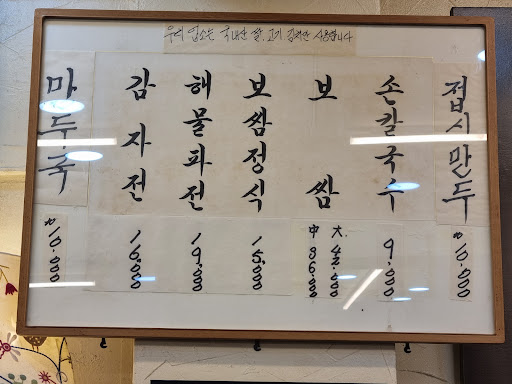 우리 업소는 국내산 쌀, 고기 김치만 사용합니다
만두국
₩10.000
감자전
16.000
해물파전
19.000
보쌈정식
15.000
보쌈
中 36.000
大 42.000
손칼국수
9.000
접시만두
₩10.000